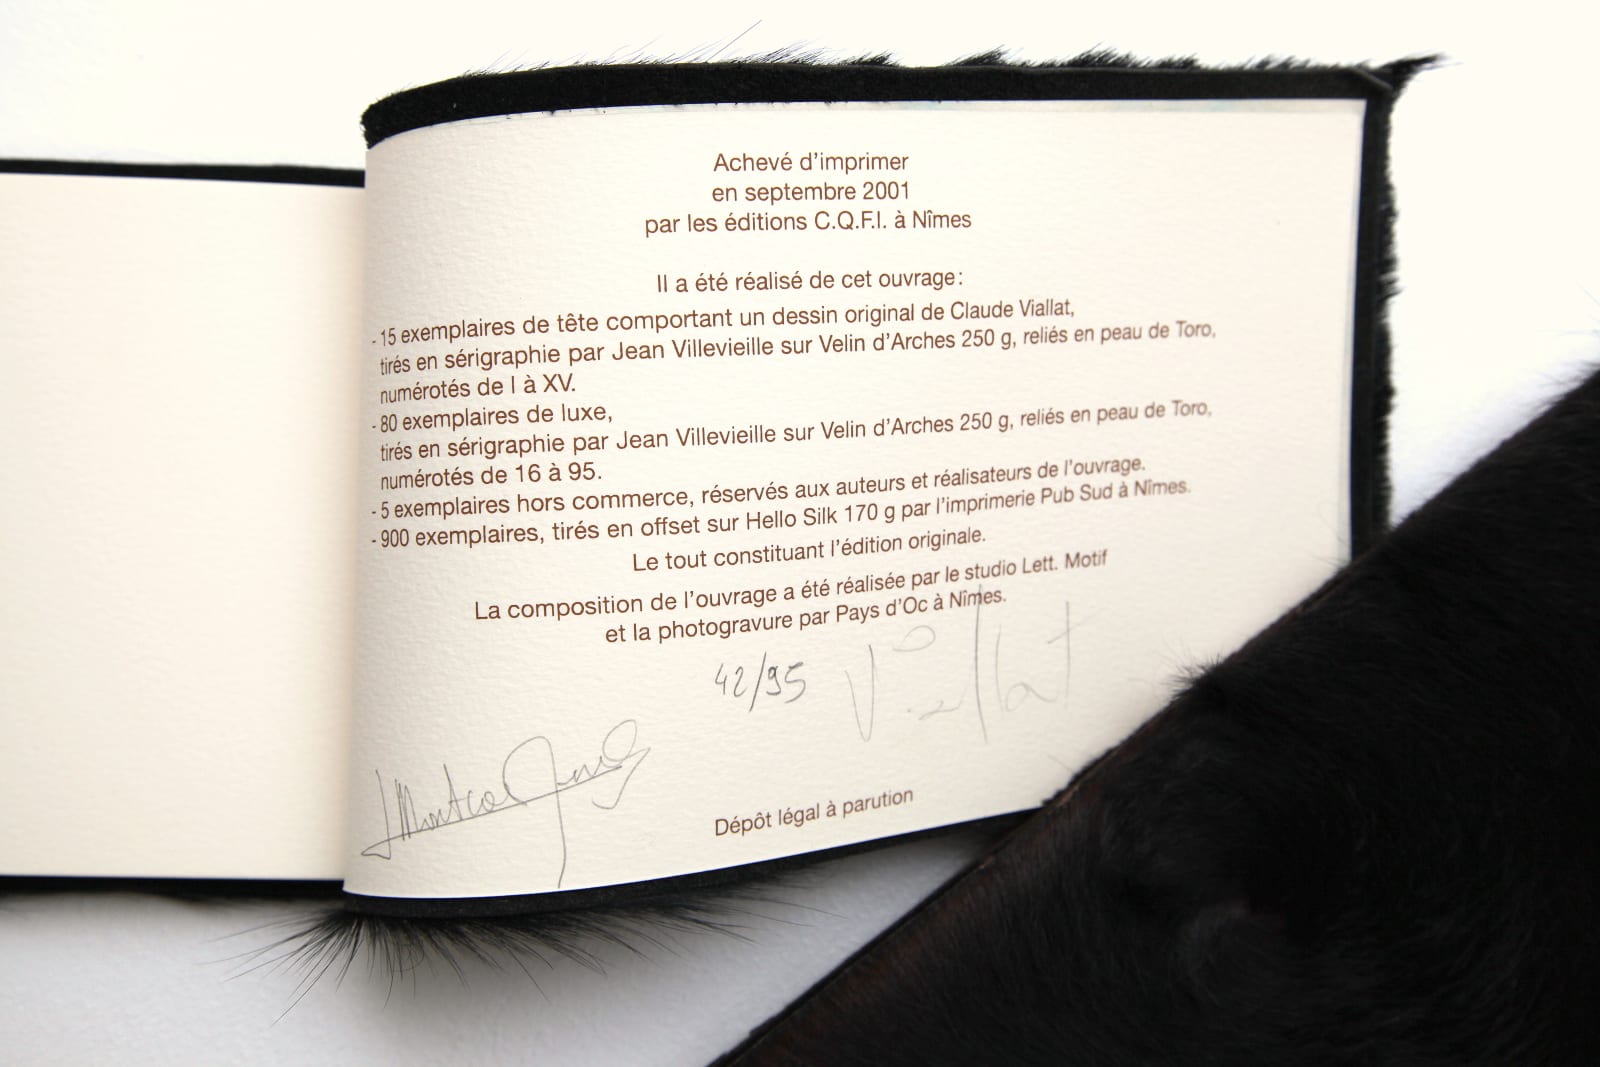 Achevé d'imprimer
en septembre 2001
par les éditions C.Q.F.I. à Nîmes
Il a été réalisé de cet ouvrage :
- 15 exemplaires de tête comportant un dessin original de Claude Viallat,
tirés en sérigraphie par Jean Villevieille sur Velin d'Arches 250 g, reliés en peau de Toro,
numérotés de I à XV.
- 80 exemplaires de luxe,
tirés en sérigraphie par Jean Villevieille sur Velin d'Arches 250 g, reliés en peau de Toro,
numérotés de 16 à 95.
- 5 exemplaires hors commerce, réservés aux auteurs et réalisateurs de l'ouvrage.
- 900 exemplaires, tirés en offset sur Hello Silk 170 g par l'imprimerie Pub Sud à Nîmes.
Le tout constituant l'édition originale.
La composition de l'ouvrage a été réalisée par le studio Lett. Motif
et la photogravure par Pays d'Oc à Nîmes.
42/95 Viallat
Dépôt légal à parution